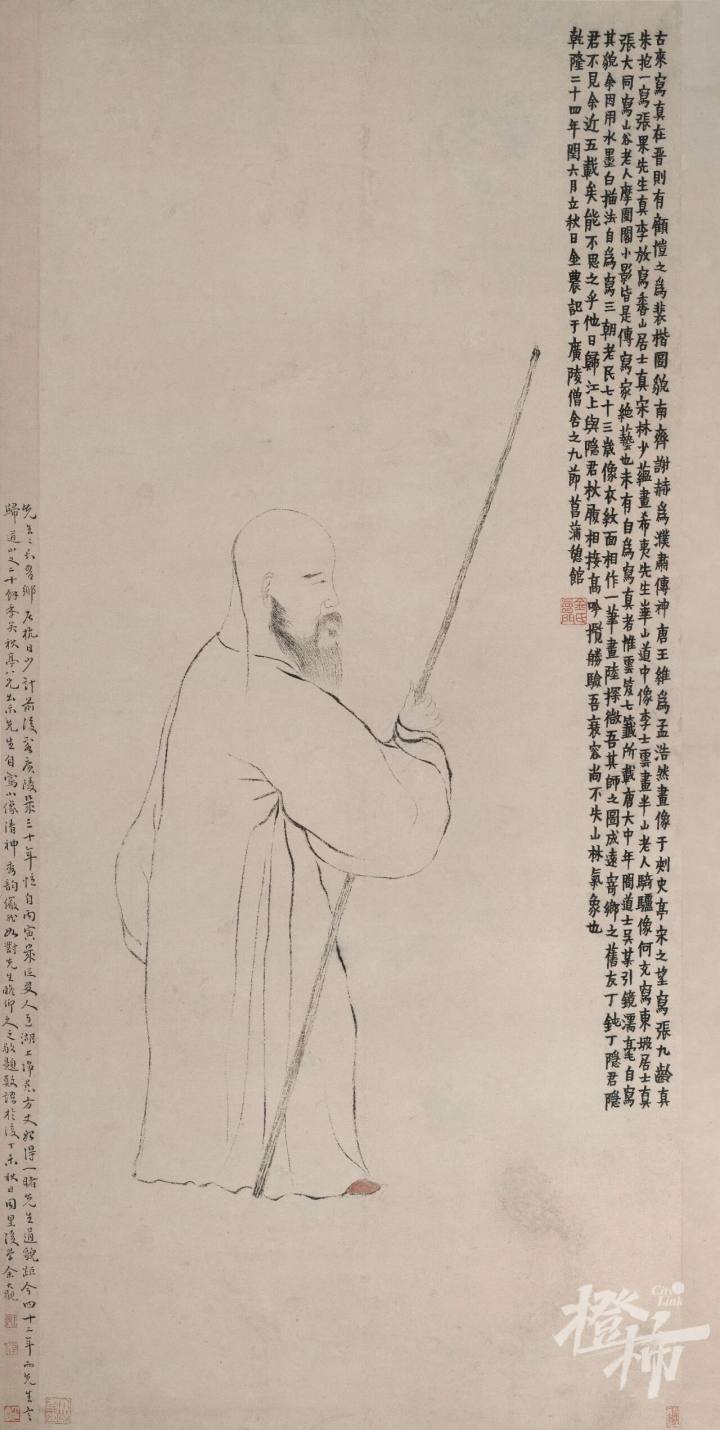 古來寫真在晉則有顧愷之為裴楷圖貌南齊謝赫為濮肅傳神唐王維為孟浩然畫像于刺史亭宋之望寫張九齡真
朱抱一寫張果先生真李放寫香山居士真宋林少蘊畫希夷先生華山道中像李士雲畫半山老人騎驢像何充寫東坡居士真
張大同寫山谷老人摩圍閣小影皆是傳寫家絕藝也未有自為寫真者惟雲笈七籤所載唐大中年間道士吳某引鏡濡毫自寫
其貌余因用水墨白描法自為寫三朝老民七十三歲像衣紋面相作一筆畫陸探微吾其師之圖成遠寄鄉之舊友丁鈍丁隱君隱
君不見余近五載矣能不思之乎他日歸江上與隱君杖履相接高吟攬勝驗吾衰容尚不失山林氣象也
乾隆二十四年閏六月立秋日金農記于廣陵僧舍之九節菖蒲憩館
金氏
先生之去吾鄉居杭日少計前後客廣陵幾三十年憶自丙寅歲 友人 湖上 方丈始得一睹先生道貌距今四十二年而先生之
歸道山又二十餘年矣秋 八兄出示先生自寫小像清神秀韵儼然如對先生瞻仰之 敬題數語於後丁未秋日同里後學余大觀
City Link
橙柿